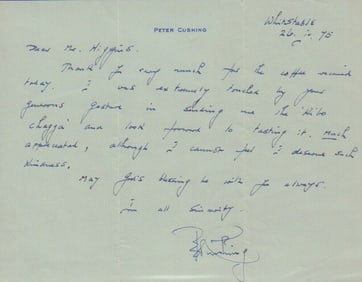 PETER CUSHING
Whitstable
26. 1. 75
Dear Mr. Higgins.
Thank you very much for the coffee received
today. I was extremely touched by your
generous gesture in sending me the Kibo
Chagga and look forward to tasting it. Much
appreciated, although I cannot feel I deserve such
kindness.
May God's blessing be with you always.
In all sincerity.